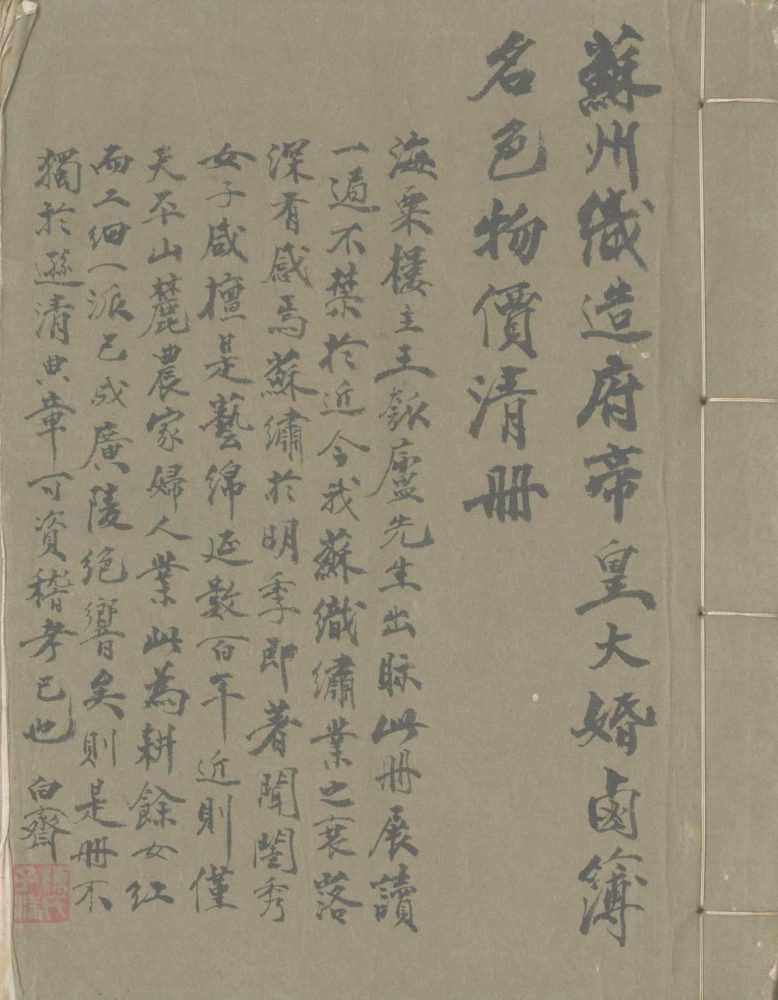 蘇州織造府帝皇大婚鹵簿
名色物價清册
海粟樓主王瓠廬先生出眎此册展讀
一過不禁於近今我蘇織繡業之衰落
深有感焉蘇繡於明季即著聞閨秀
女子咸擅是藝綿延數百年近則僅
天平山麓農家婦人業此為耕餘女紅
而工細一派已成廣陵絕響矣則是册不
獨於遜清典章可資稽考已也 白齋